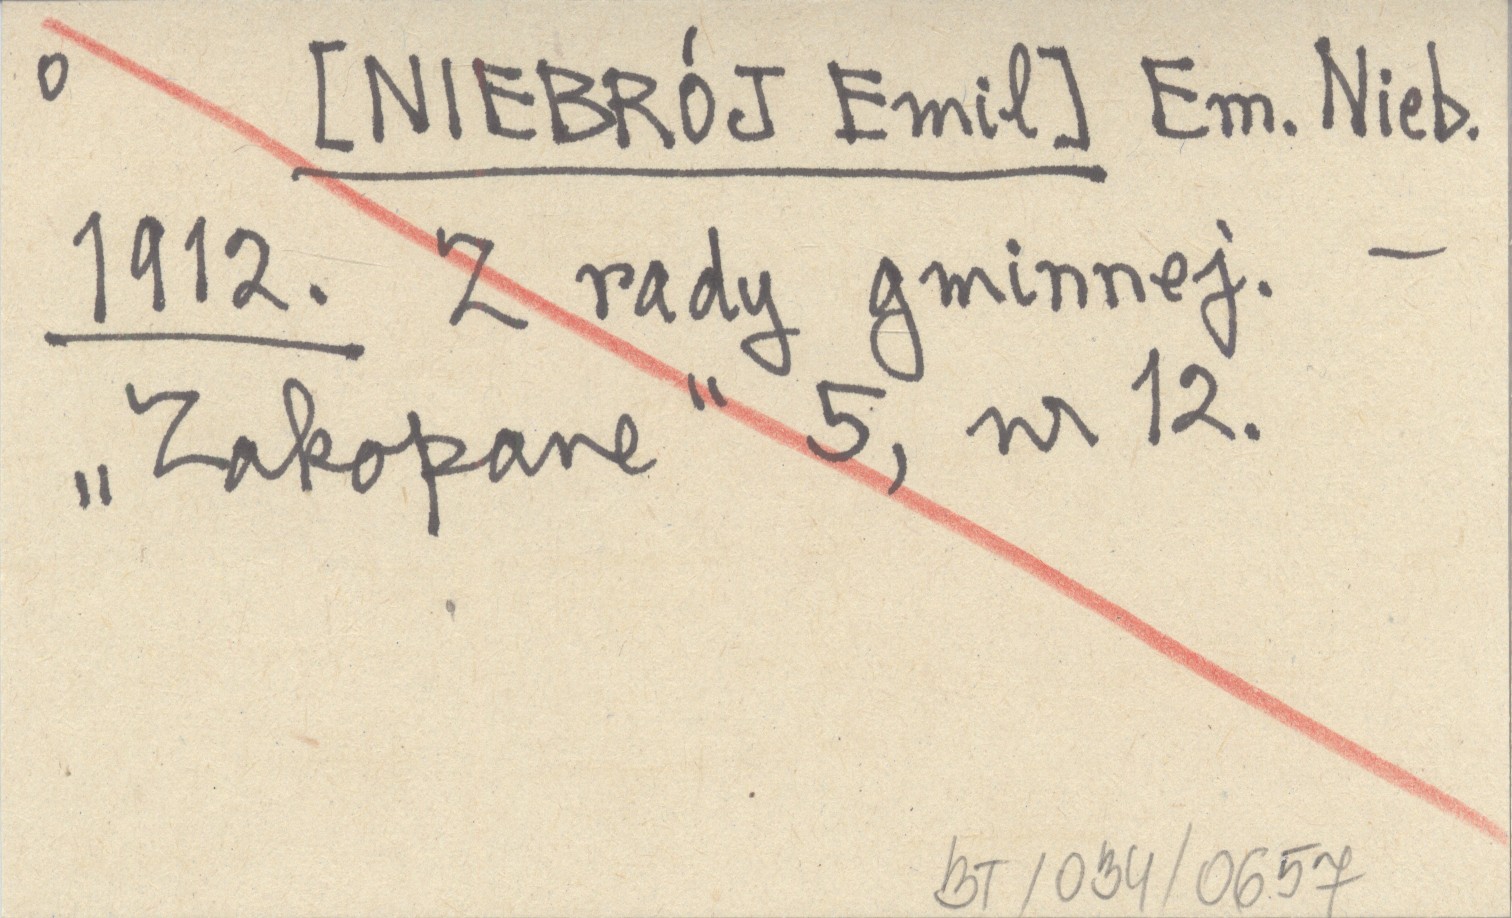 o [NIEBRÓJ Emil] Em. Nieb.
1912. Z rady gminnej. —
„Zakopane" 5, nr 12.
BT/034/0657